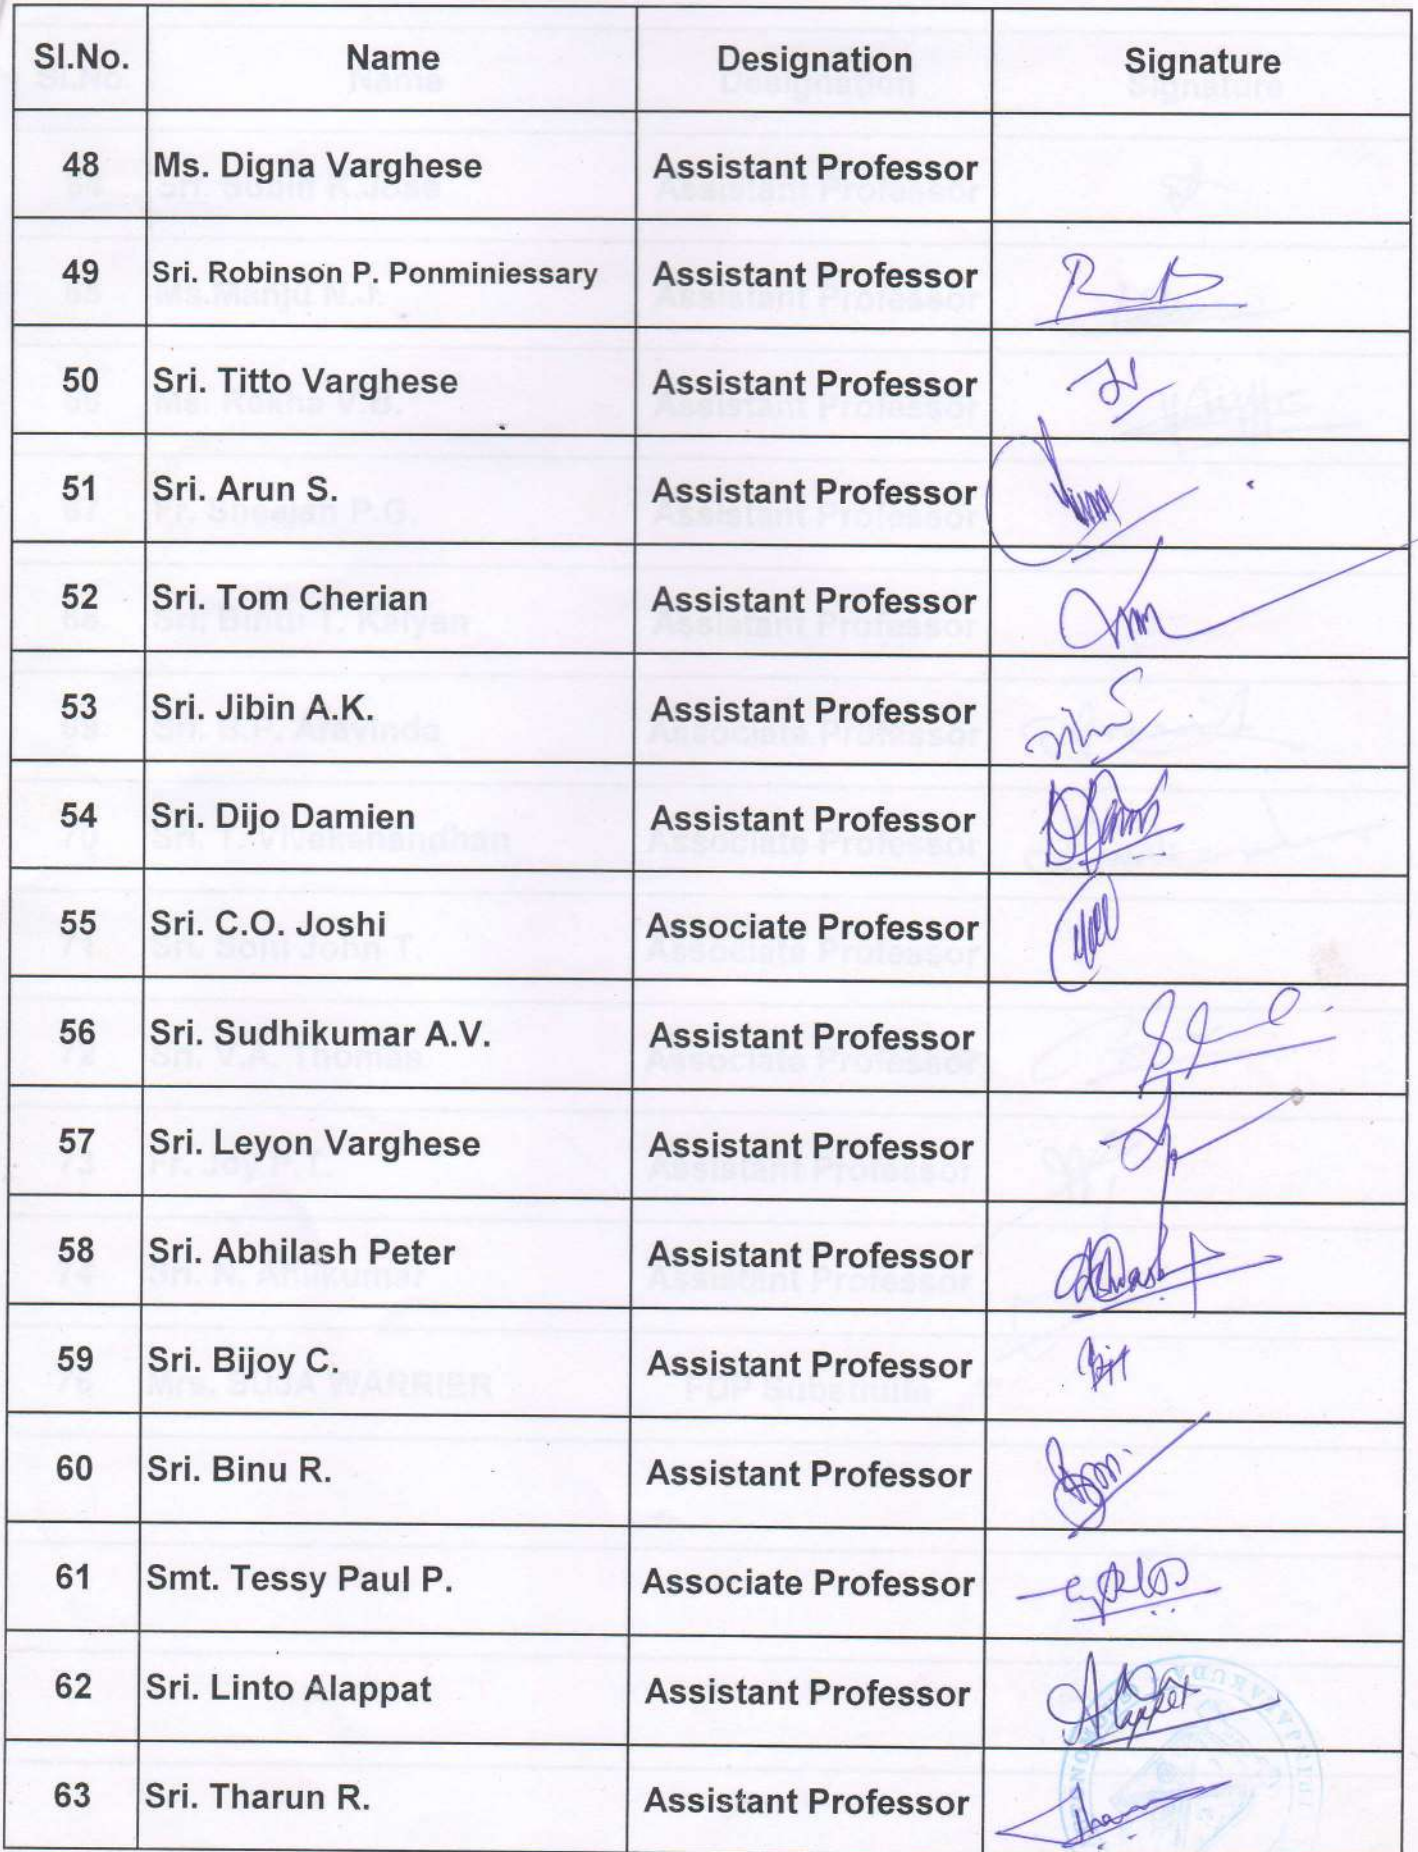 Sl.No. Name Designation Signature
48 Ms. Digna Varghese Assistant Professor
49 Sri. Robinson P. Ponminiessary Assistant Professor
50 Sri. Titto Varghese Assistant Professor
51 Sri. Arun S. Assistant Professor
52 Sri. Tom Cherian Assistant Professor
53 Sri. Jibin A.K. Assistant Professor
54 Sri. Dijo Damien Assistant Professor
55 Sri. C.O. Joshi Associate Professor
56 Sri. Sudhikumar A.V. Assistant Professor
57 Sri. Leyon Varghese Assistant Professor
58 Sri. Abhilash Peter Assistant Professor
59 Sri. Bijoy C. Assistant Professor
60 Sri. Binu R. Assistant Professor
61 Smt. Tessy Paul P. Associate Professor
62 Sri. Linto Alappat Assistant Professor
63 Sri. Tharun R. Assistant Professor